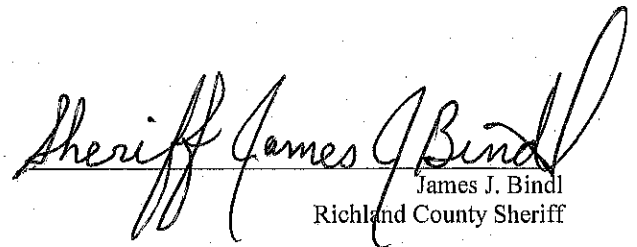 Sheriff James J Bindl
James J. Bindl
Richland County Sheriff